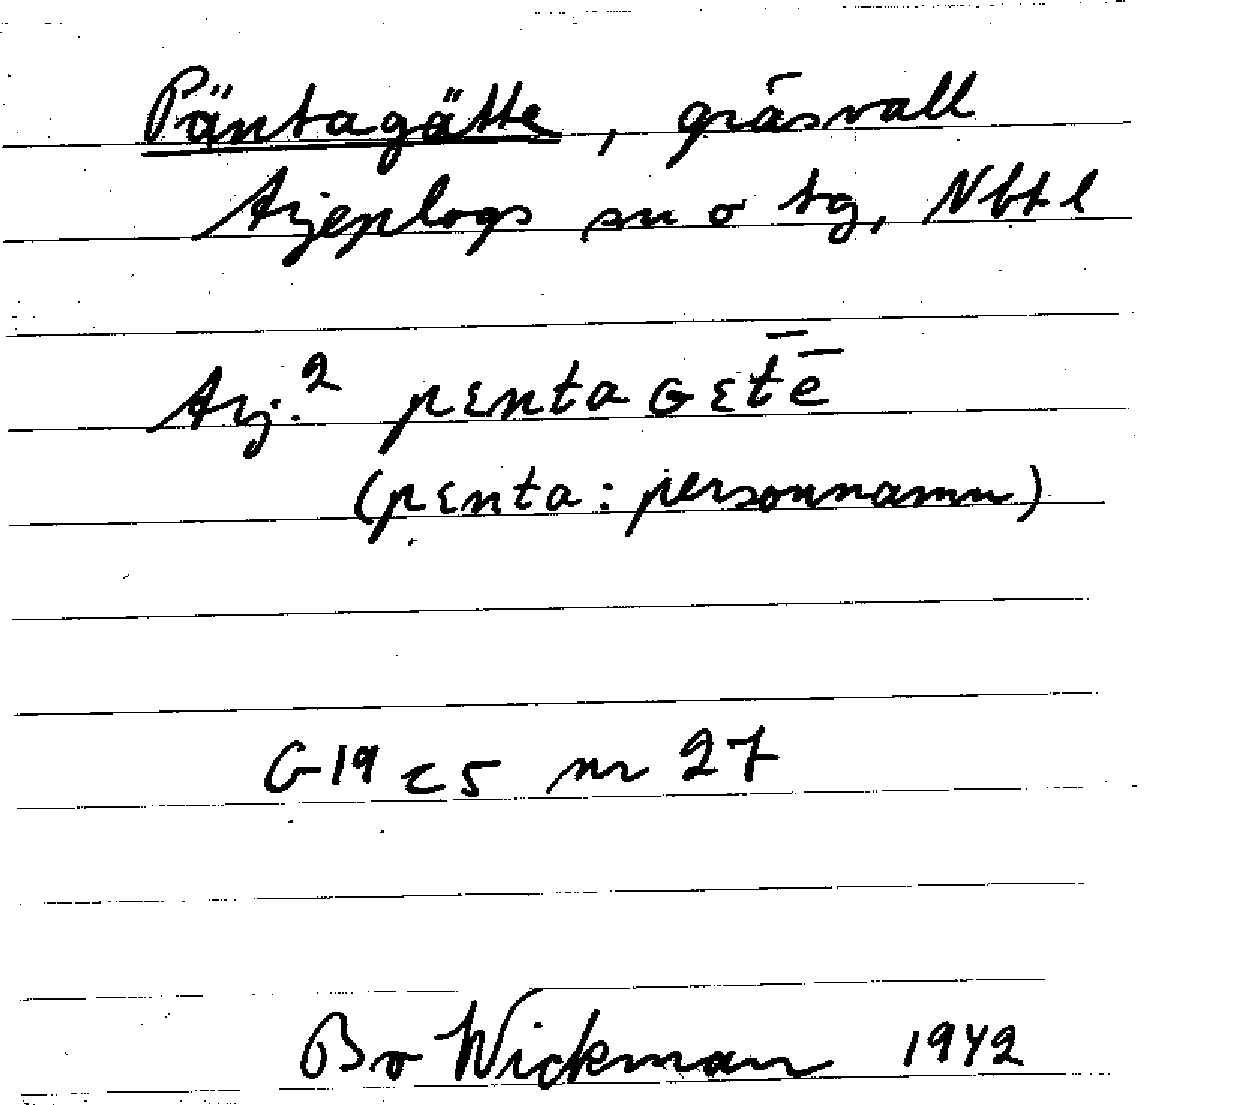 Päntagätte, gräsvall
Arjeplogs sn o tg, Nbtl
Arj.² pɛntaɢɛt̄ē
(pɛnta: personnamn)
G19 c5 nr 27
Bo Wickman 1942